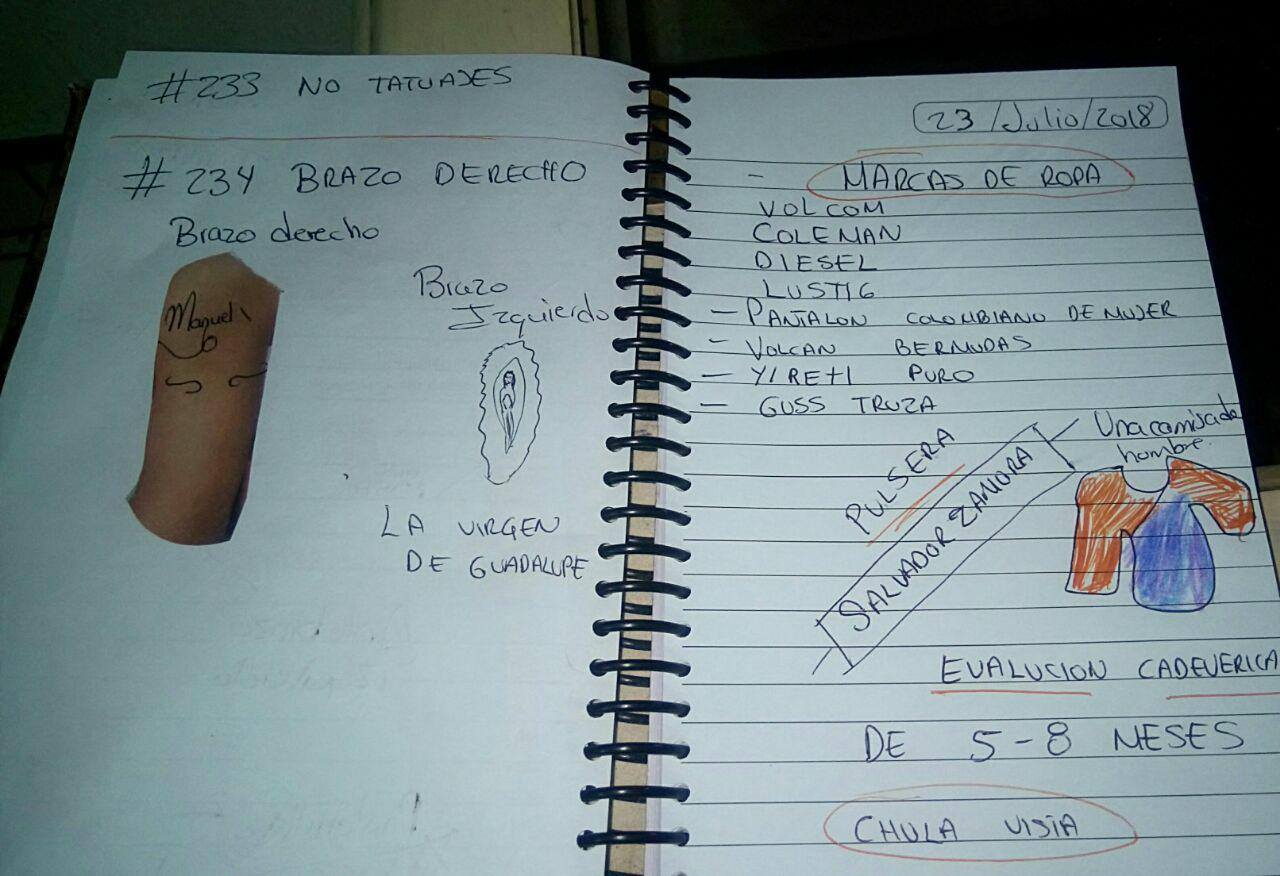 #233 NO TATUAJES
#234 BRAZO DERECHO
Brazo derecho
Manuel
Brazo
Izquierdo
LA VIRGEN
DE GUADALUPE
23/Julio/2018
- MARCAS DE ROPA
VOLCOM
COLEMAN
DIESEL
LUSTIG
- PANTALON COLOMBIANO DE MUJER
- VOLCAN BERMUDAS
- YIRETI PURO
- GUSS TRUZA
PULSERA
SALVADOR ZAMORA
Una camisa de
hombre.
EVALUCION CADEVERICA
DE 5-8 MESES
CHULA VISTA